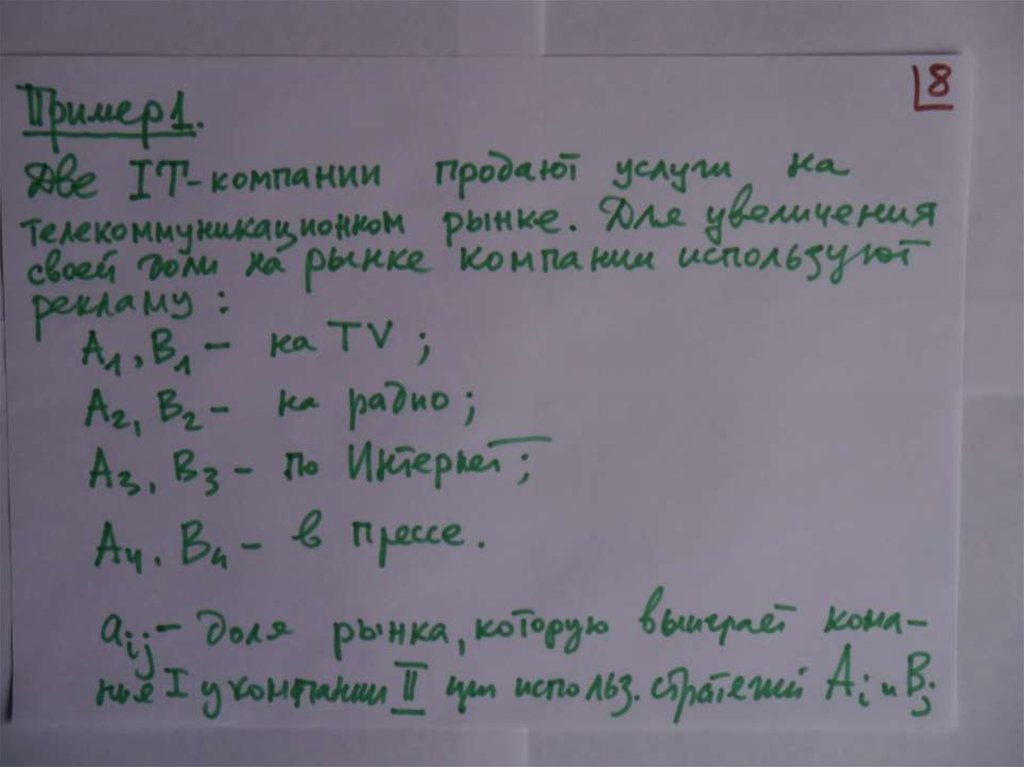 8
Пример 1.
Две IT-компании продают услуги на
телекоммуникационном рынке. Для увеличения
своей доли на рынке компании используют
рекламу:
A1, B1 - на TV;
A2, B2 - на радио;
A3, B3 - по Интернет;
A4, B4 - в прессе.
aij - доля рынка, которую выиграет компа-
ния I у компании II при использ. стратегий Ai и Bj